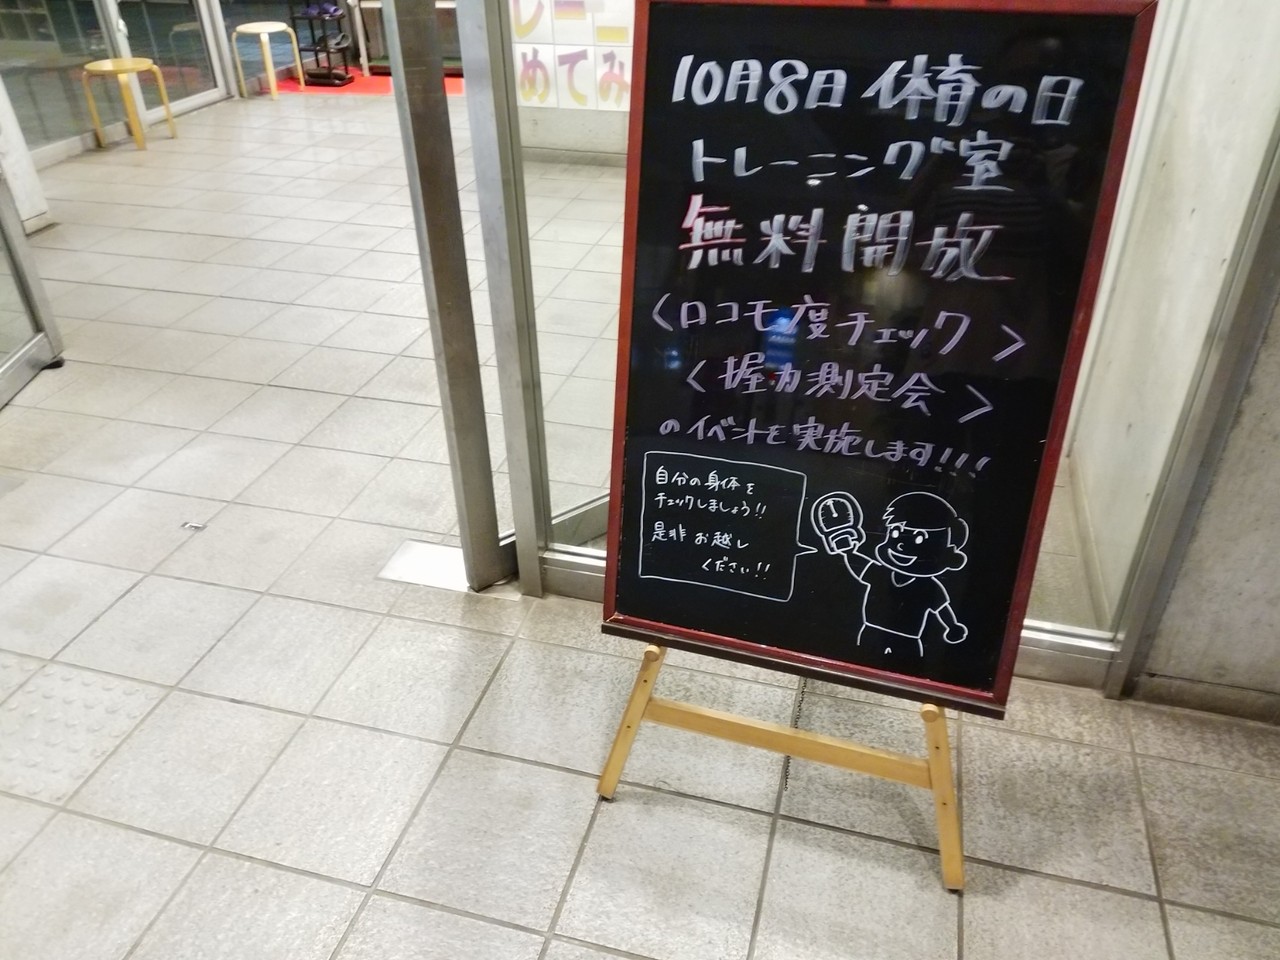 レーニ
めてみ
10月8日 体育の日
トレーニング室
無料開放
〈ロコモ度チェック〉
〈握力測定会〉
のイベントを実施します!!!
自分の身体を
チェックしましょう!!
是非 お越し
ください!!